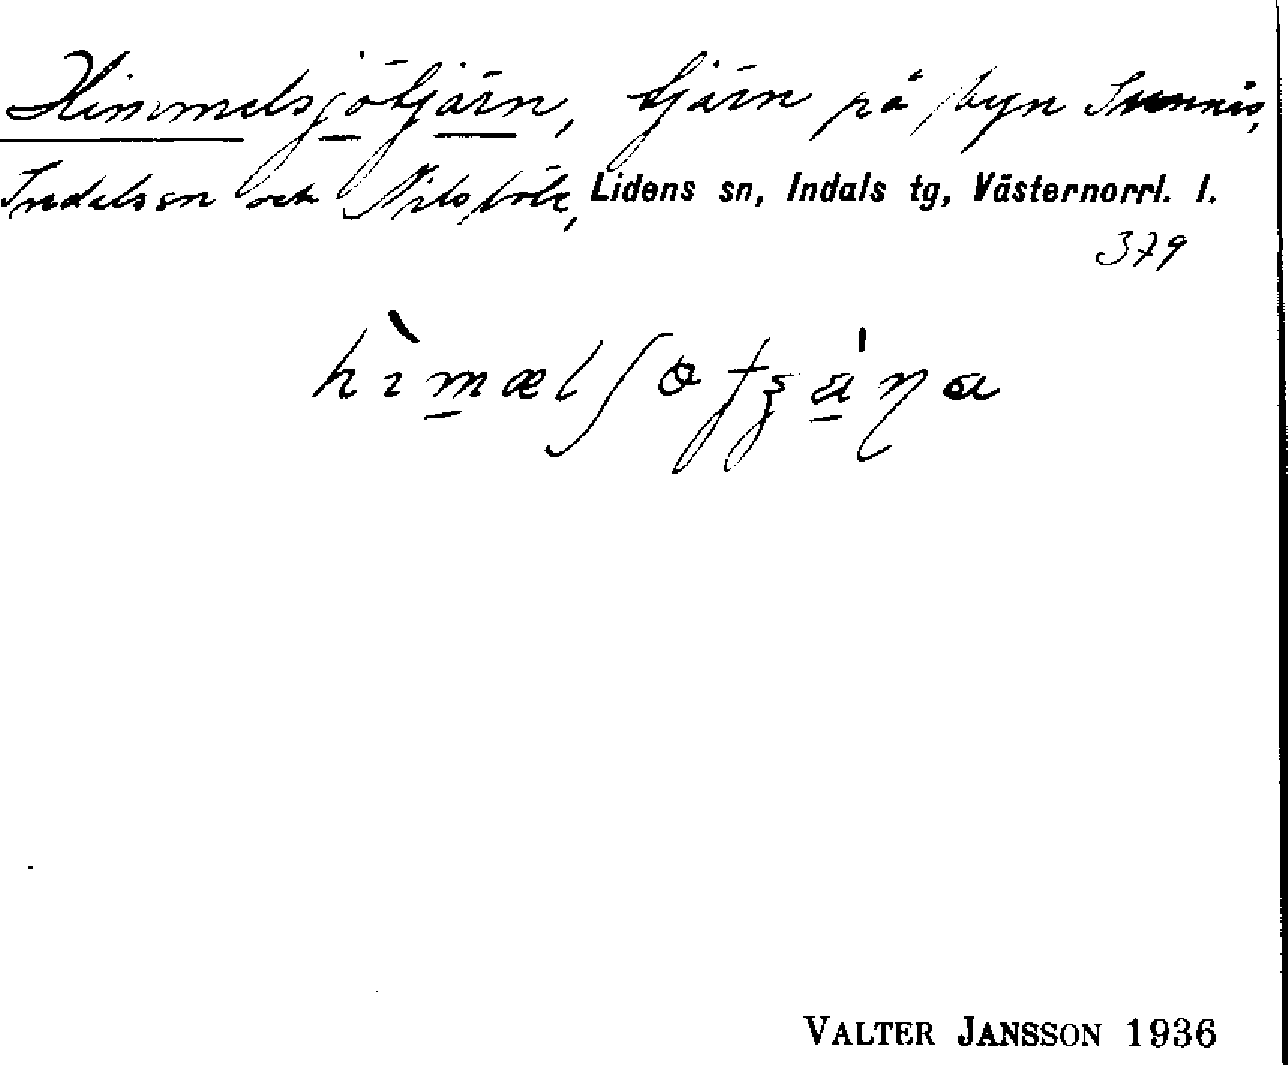 Himmelsjötjärn, tjärn på byn Sunnäs,
Indalsen och Nilsböle, Lidens sn, Indals tg, Västernorrl. l.
379
VALTER JANSSON 1936